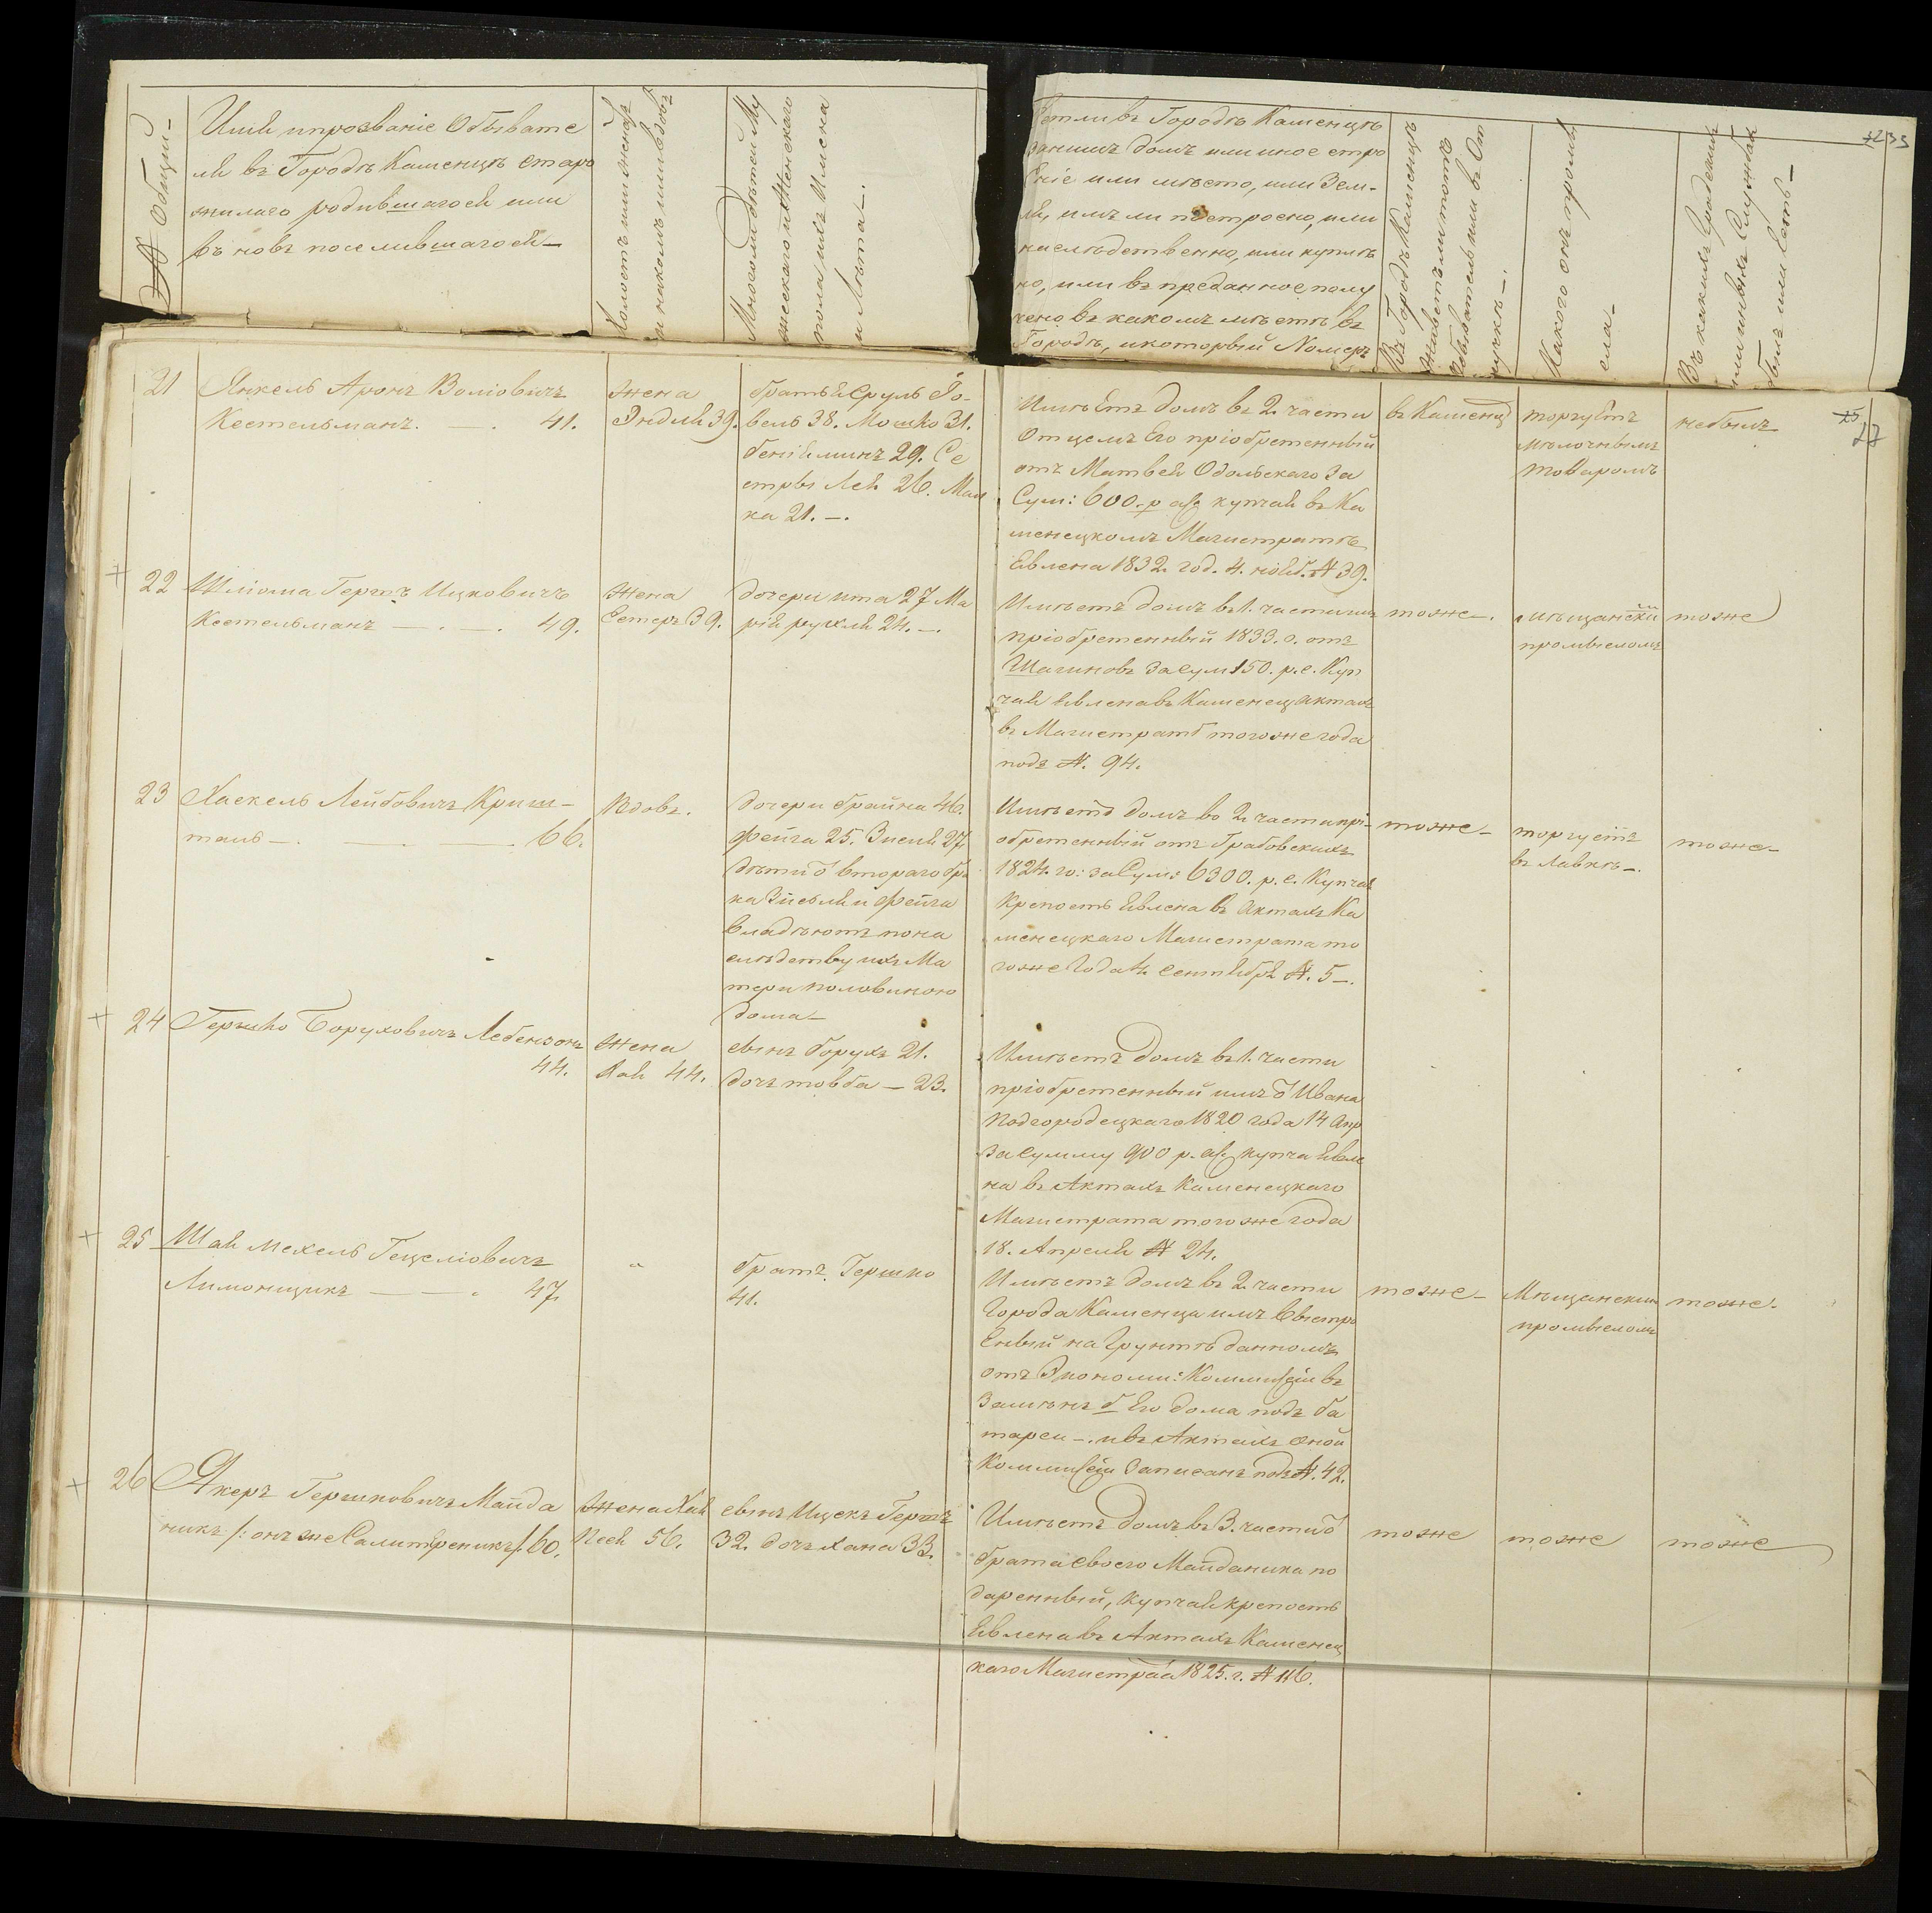 № Общій
Имя и прозваніе Обывате
ля въ Городѣ Каменцѣ старо
жилаго родившагося или
въ новѣ поселившагося
Холостъ или женатъ
и на комъ или вдовъ
Много ли дѣтей Му
жескаго и Женскаго
пола ихъ Имена
и Лѣта
Есть ли въ Городѣ Каменцѣ
за нимъ домъ или иное стро
еніе или мѣсто, или Зем-
ля, имъ ли построено, или
наслѣдственно, или купле
но, или въ преданное полу
чено въ какомъ мѣстѣ въ
Городѣ, и который Номеръ
Въ Городѣ Каменцѣ
живетъ ли тотъ
Обыватель или въ От
лучкѣ
Какого онъ промы
сла
Въ какихъ Градскихъ
или иныхъ Службахъ
былъ или есть
27
21
Янкель Аронъ Воліовичъ
Кестельманъ. 41.
Жена
Эидля 39.
братья Сруль Іо-
вель 38. Мошко 31.
беніяминъ 29. Се
стры Лея 26. Мал
ка 21.
Имѣетъ домъ въ 2. части
Отцемъ Его пріобретенный
отъ Матвея Одольскаго за
Сум: 600. р ас купчая въ Ка
менецкомъ Магистратѣ
Явлена 1832. год. 4. нояб. № 39.
въ Каменц
торгуетъ
мѣлочнымъ
товаромъ
небылъ
22
Шліома Гершъ Ицковичъ
Кестельманъ 49.
Жена
Естеръ 39.
дочери ита 27 Ма
рія рухля 24.
Имѣетъ домъ въ 1. части им
пріобретенный 1833. г. отъ
Шагиновъ за сум 150. р. с. Куп
чая явлена въ Каменец актахъ
въ Магистратѣ тогоже года
подъ №. 94.
тоже
мѣщански
промысломъ
тоже
23
Хаскель Лейбовичъ Криш-
таль 66.
Вдовъ.
дочери брайна 46.
фейга 25. Зисля 27.
дѣти втораго бра
ка Зисля и фейга
владѣютъ пона
слѣдству ихъ Ма
тери половиною
дома
Имѣетъ домъ во 2. части прі-
обретенный отъ Грабовскихъ
1824. го: за Сум: 6300. р. с. Купчая
Крепость Явлена въ Актахъ Ка
менецкаго Магистрата то
гоже Года 4. Сентября №. 5
тоже
торгуетъ
въ Лавкѣ
тоже
24
Гершко Боруховичъ Лебензонъ
44.
Жена
Хая 44.
сынъ борухъ 21.
дочь товба 23.
Имѣетъ домъ въ 1. части
пріобретенный имъ Ивана
Подгородецкаго 1820 года 14 Апр
за сумму 900 р. ас купча Явле
на въ Актахъ Каменецкаго
Магистрата тогоже года
18. Апреля № 24.
25
Шая Мехель Гецеліовичъ
Лимонщикъ 47
"
братъ Гершко
41.
Имѣетъ домъ въ 2. части
Города Каменца имъ Выстро
Енный на Грунтѣ данномъ
отъ Экономи: Коммисіи въ
Замѣнъ Его дома подъ ба
тареи и въ Актахъ оной
Коммисіи Записанъ подъ №. 42.
тоже
Мѣщанским
промысломъ
тоже
26
Акеръ Гершковичъ Майда
никъ /: онъ же Салитреникъ /. 60.
Жена Хая
Песя 56.
сынъ Ицекъ Гершъ
32. дочь Хана 33.
Имѣетъ домъ въ 3. части
брата своего Майданика по
даренный, Купчая Крепость
Явлена въ Актахъ Каменец
каго Магистрата 1825. г. № 116.
тоже
тоже
тоже